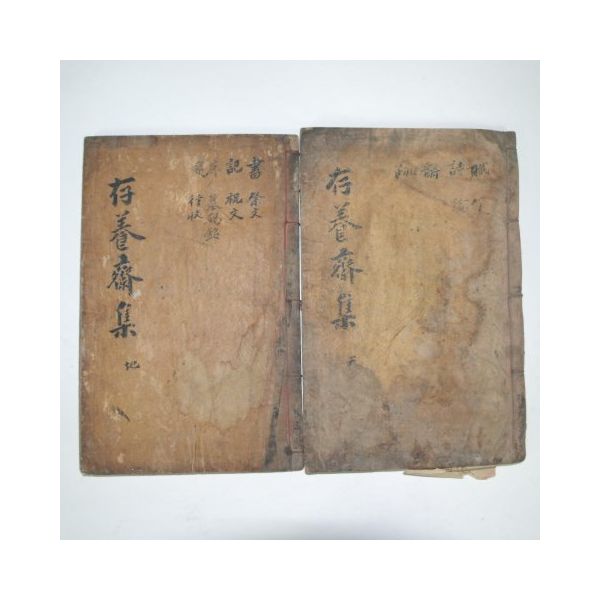 賦
詩
存養齋集
天
書 祭文
記 祝文
墓碣銘
行狀
存養齋集
地